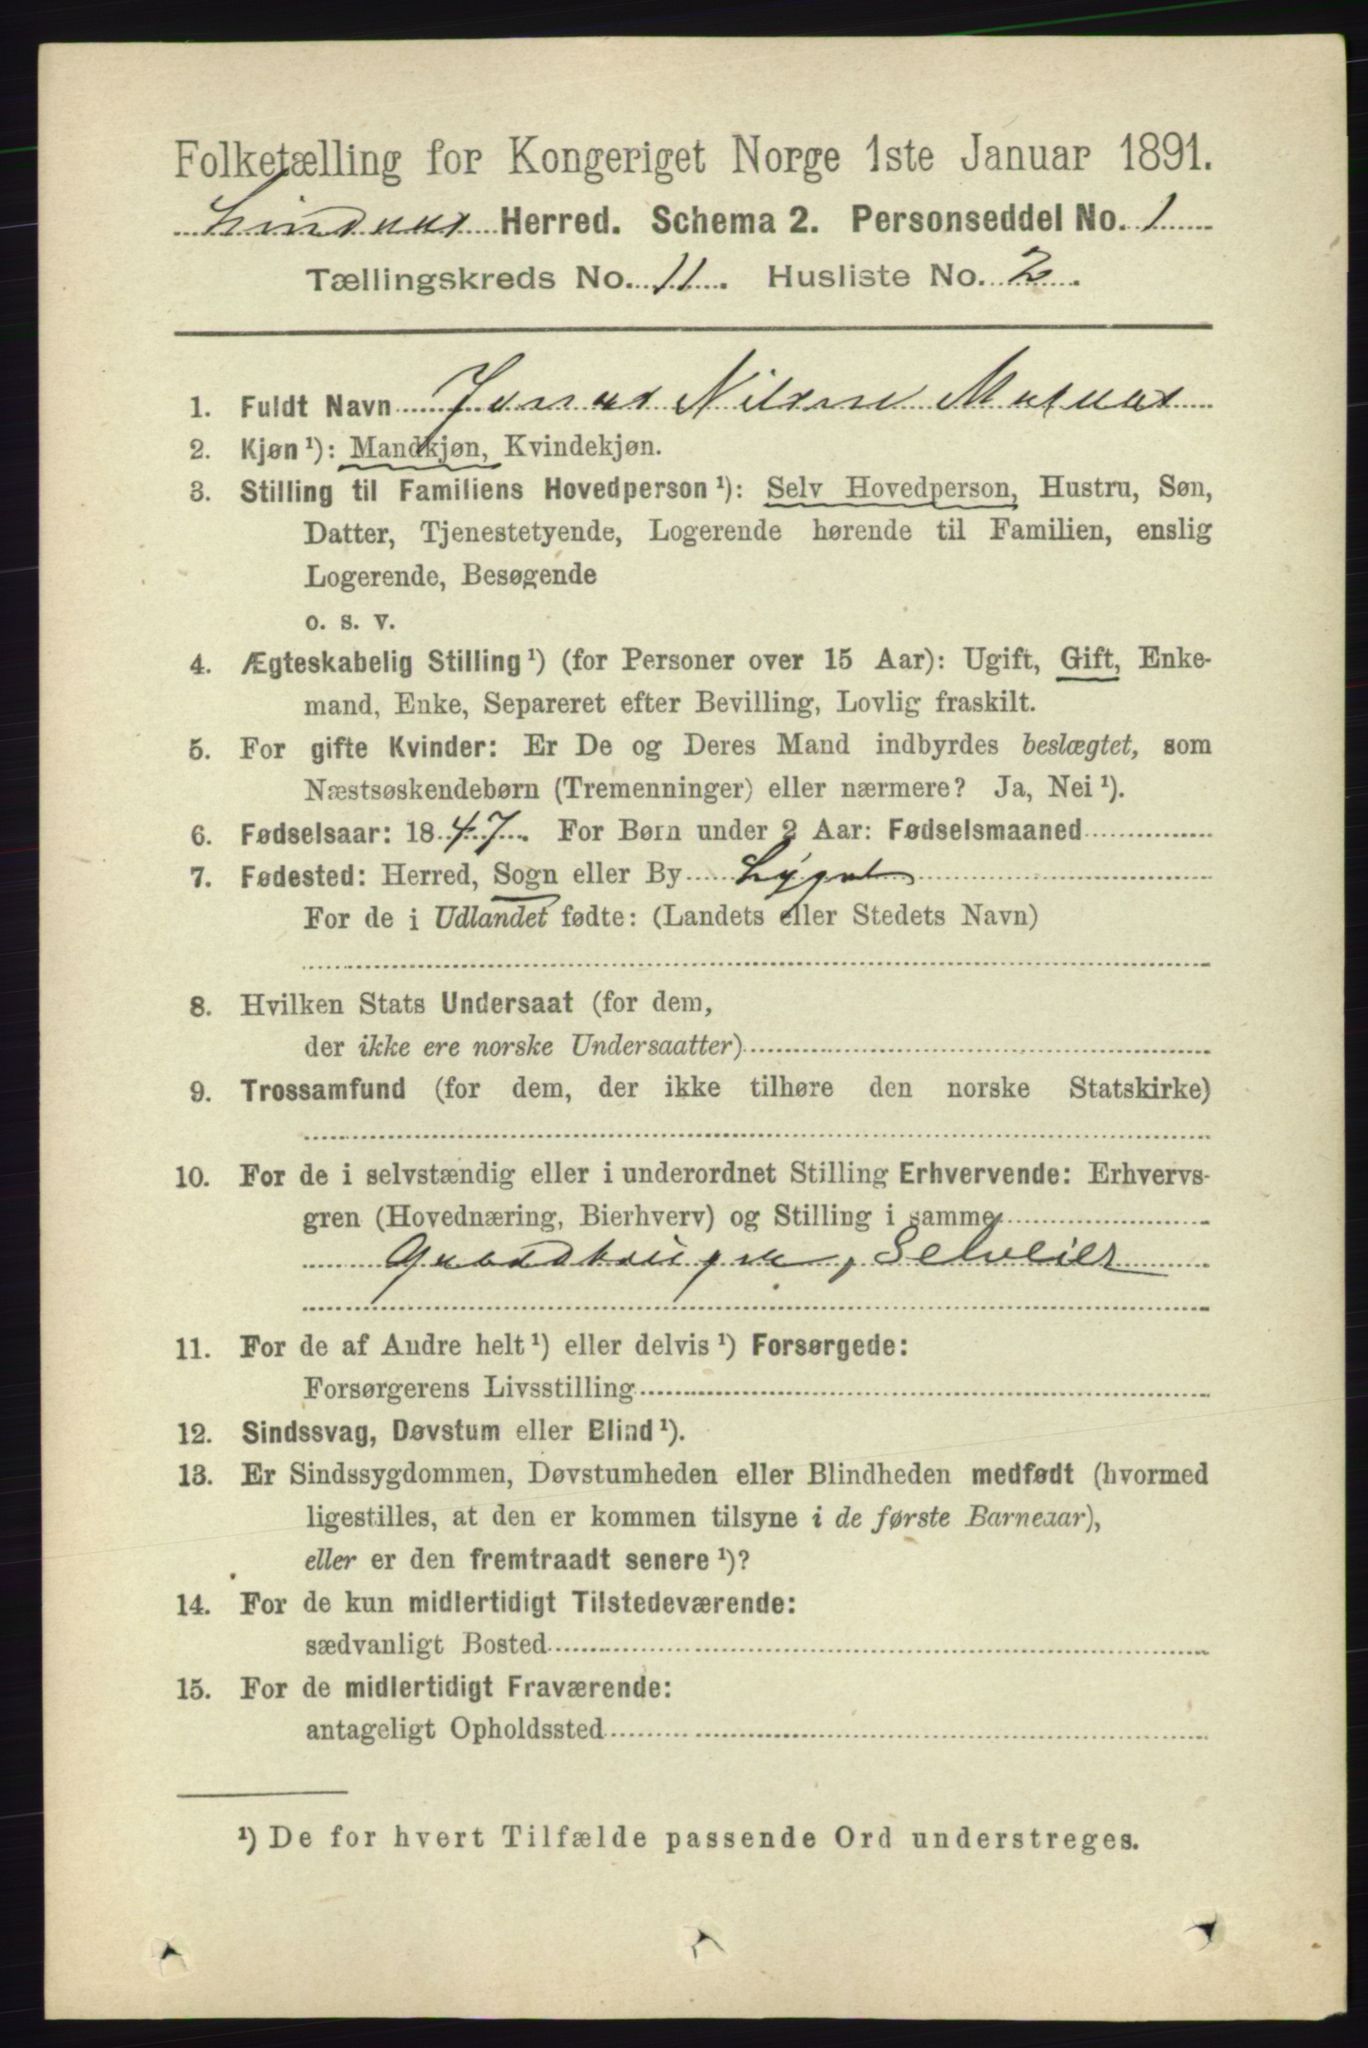 Folketælling for Kongeriget Norge 1ste Januar 1891.
Lindaas Herred. Schema 2. Personseddel No. 1
Tællingskreds No. 11. Husliste No. 2.
1. Fuldt Navn Jonas Nilsen
2. Kjøn¹): Mandkjøn, Kvindekjøn.
3. Stilling til Familiens Hovedperson¹): Selv Hovedperson, Hustru, Søn,
Datter, Tjenestetyende, Logerende hørende til Familien, enslig
Logerende, Besøgende
o. s. v.
4. Ægteskabelig Stilling¹) (for Personer over 15 Aar): Ugift, Gift, Enke-
mand, Enke, Separeret efter Bevilling, Lovlig fraskilt.
5. For gifte Kvinder: Er De og Deres Mand indbyrdes beslægtet, som
Næstsøskendebørn (Tremenninger) eller nærmere? Ja, Nei¹).
6. Fødselsaar: 1847. For Børn under 2 Aar: Fødselsmaaned
7. Fødested: Herred, Sogn eller By Lygre
For de i Udlandet fødte: (Landets eller Stedets Navn)
8. Hvilken Stats Undersaat (for dem,
der ikke ere norske Undersaatter)
9. Trossamfund (for dem, der ikke tilhøre den norske Statskirke)
10. For de i selvstændig eller i underordnet Stilling Erhvervende: Erhvervs-
gren (Hovednæring, Bierhverv) og Stilling i samme
Gaardbruger, Selveier
11. For de af Andre helt¹) eller delvis¹) Forsørgede:
Forsørgerens Livsstilling
12. Sindssvag, Døvstum eller Blind¹).
13. Er Sindssygdommen, Døvstumheden eller Blindheden medfødt (hvormed
ligestilles, at den er kommen tilsyne i de første Barneaar),
eller er den fremtraadt senere¹)?
14. For de kun midlertidigt Tilstedeværende:
sædvanligt Bosted
15. For de midlertidigt Fraværende:
antageligt Opholdssted
¹) De for hvert Tilfælde passende Ord understreges.